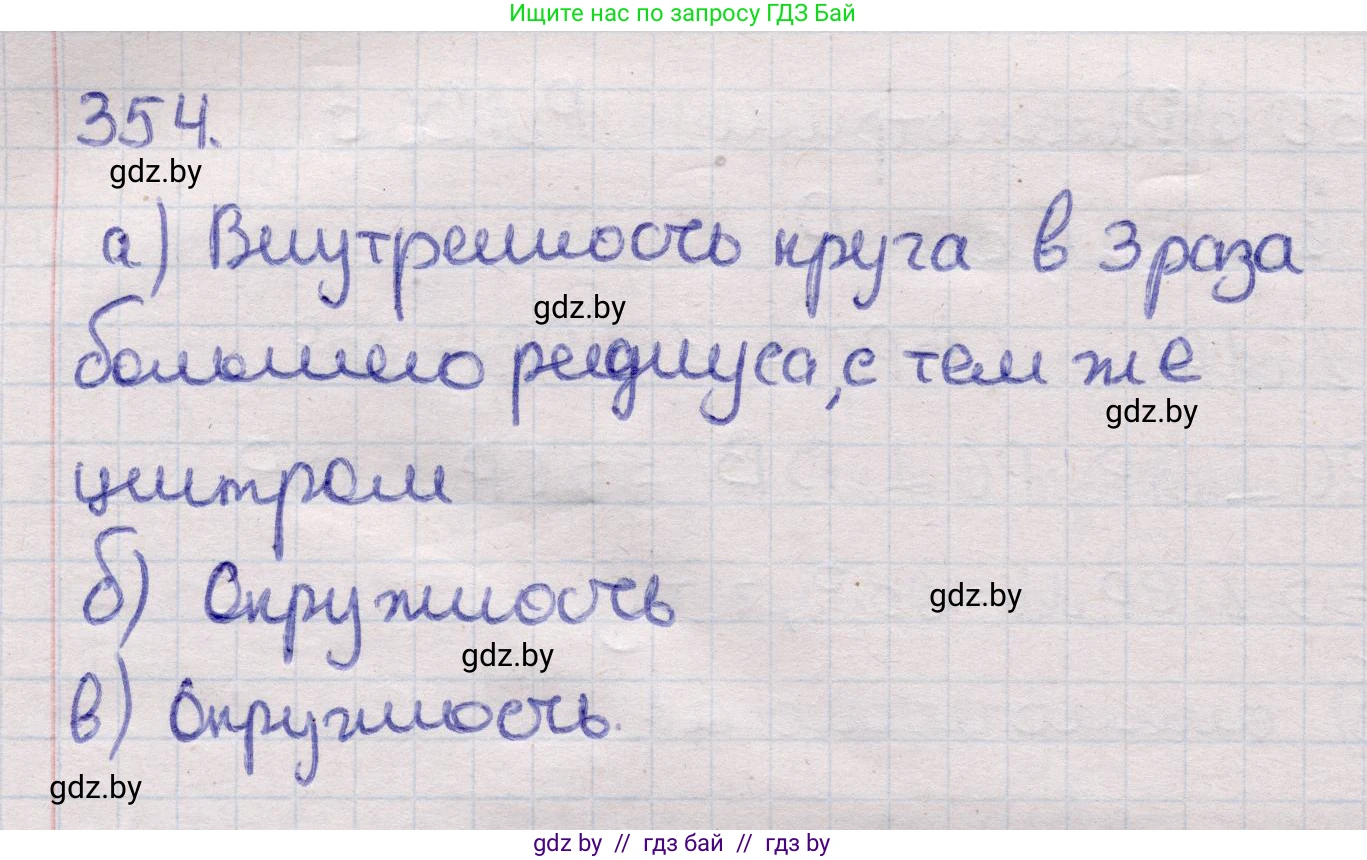 Ищите нас по запросу ГДЗ Бай
354.
gdz.by
а) Внутренность круга в 3 раза
gdz.by
большего радиуса, с тем же
gdz.by
центром
б) Окружность
gdz.by
gdz.by
в) Окружность.
gdz.by
gdz by // гдз бай // гдз by